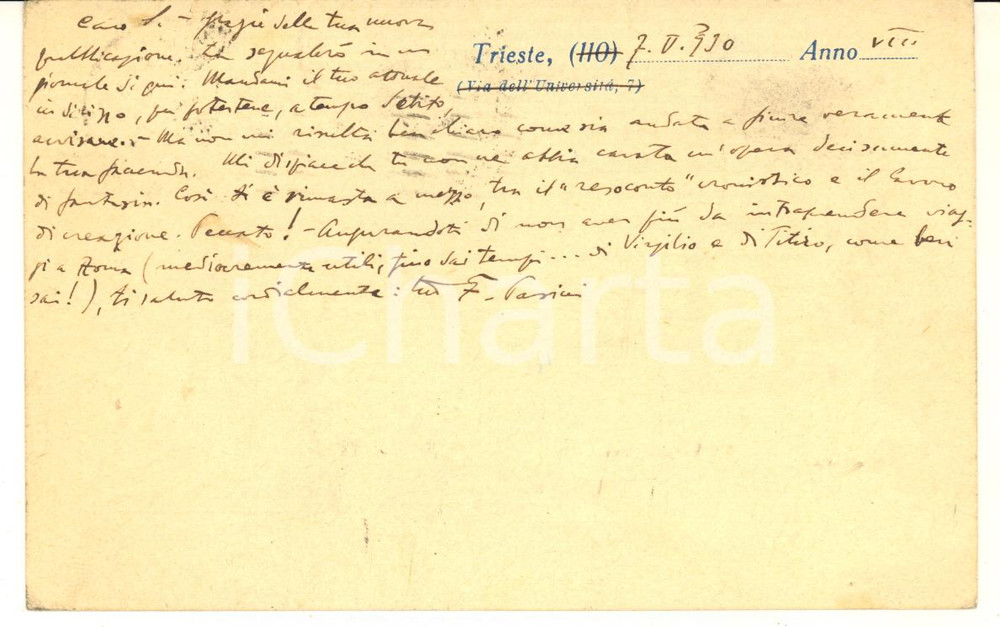 Caro S. - grazie della tua nuova
pubblicazione. La segnalerò in un
giornale di qui. Mandami il tuo attuale
indirizzo, per potertene, a tempo debito,
avvisare. - Ma non mi risulta ben chiaro come sia andata a finire veramente
la tua faccenda. Mi dispiace che tu non ne abbia cavata un'opera decisamente
di fantasia. Così ti è rimasta a mezzo, tra il "resoconto" cronistico e il lavoro
di creazione. Peccato! - Augurandoti di non aver più da intraprendere viag-
gi a Roma (mediocremente utili, fino dai tempi... di Virgilio e di Titiro, come ben
sai!), ti saluto cordialmente: tuo F. Pasini
Trieste, (110) 7. V. 930 Anno VIII
(Via dell'Università, 7)
iCharta